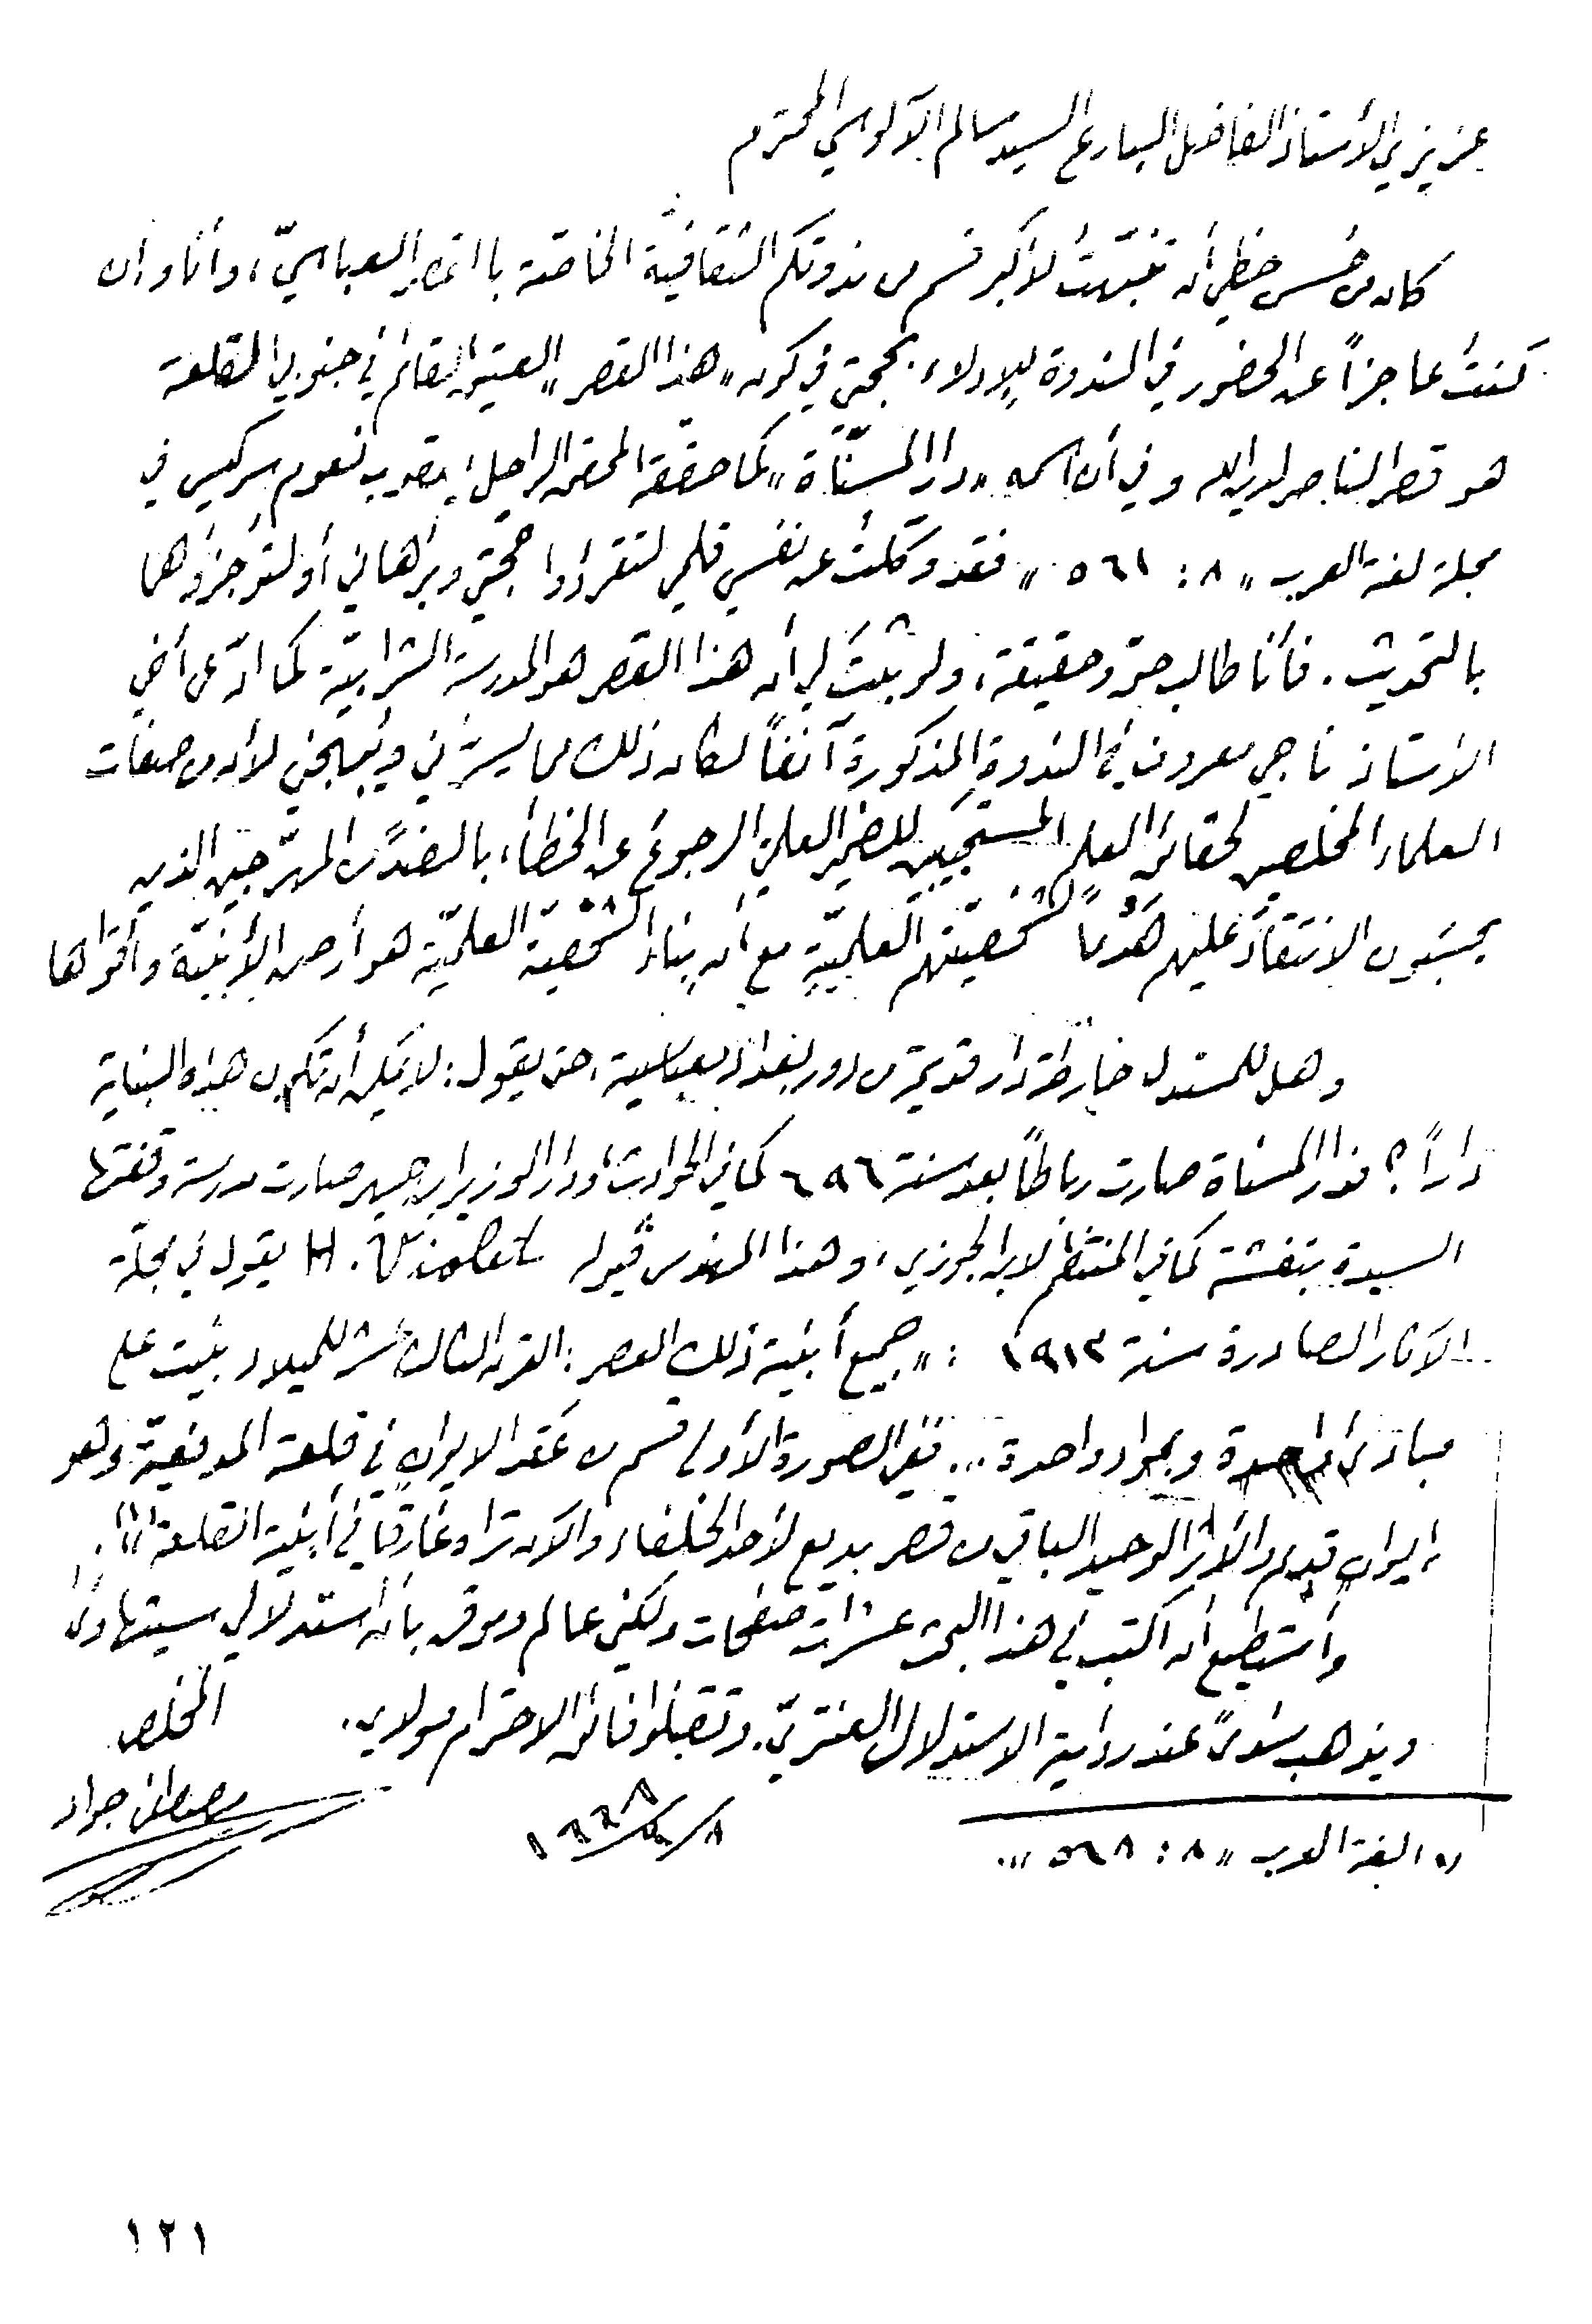 عزيزي الأستاذ الفاضل البارع السيد سالم الآلوسي المحترم
كان من حُسن حظي أن تنبّهتُ لأكبر قسم من ندوتكم الثقافية الخاصّة بالقصر العباسيّ، وأنا وان
كنتُ عاجزاً عن الحضور في الندوة للإدلاء بحجتي في كون « هذا القصر » العتيق القائم في جنوبي القلعة
هو قصر الناصر لدين الله وفي أن اسمه « دار المسنّاة » كما حققه المحقق الراحل يعقوب نعوم سركيس في
مجلة لغة العرب « ٨ : ٥٦١ » فقد وكّلتُ عن نفسي قلمي لتقرأوا حجتي وبرهاني أو لتوجزوهما
بالتحديث . فأنا طالب حقّ وحقيقة ، ولو ثبتَ لي أن هذا القصر هو المدرسة الشرابيّة كما ادّعى أخي
الاستاذ ناجي معروف في الندوة المذكورة آنفاً لكان ذلك مما يسرّني ويُبهجني لأن من صفات
العلماء المخلصين لحقائق العلم المستجيبين للضمير العلميّ الرجوعَ عن الخطأ، بالضدّ من المهرّجين الذين
يحسَبون الانتقادَ عليهم هَدْماً لشخصيّتهم العلميّةِ مع أن بناء الشخصية العلميّةِ هو أرصن الأبنيّة وأقواها
وهل للمستدل خارطة دار قديمة من دور بغداد العباسية، حتى يقول : لا يمكن أن تكون هذه البناية
داراً ؟ فدار المسناة صارت رباطاً بعد سنة ٦٩٦ كما في الحوادث، ودار الوزير ابن جهير صارت مدرسة وقفتها
السيدة بنفشة كما في المنتظم لابن الجوزي ، وهذا المهندس ڤيوله H. Viollet يقول في مجلة
الآثار الصادرة سنة ١٩١٣ : « جميع أبنية ذلك العصر : القرن الثالث عشر للميلاد بُنيت على
مبادئ واحدة وبمواد واحدة ... ففي الصورة الأولى قسم من عَقد الايوان في قلعة المدفعيّة وهو
إيوان قديم والأثر الوحيد الباقي من قصر بديع لأحد الخلفاء والآن تراه غارقاً في أبنية القلعة (١)» .
وأستطيع أن أكتب في هذا البحث عشرات صفحات ولكني عالم وموقن بأن استدلالي سيتهاوى
ويذهب سُدىً عند رداية الاستدلال العنتريّ. وتقبلوا فائق الاحترام مولاي.
المخلص
مصطفى جواد
٨/٥/١٩٦٨
(١) لغة العرب « ٨ : ٥٦٨ » .
١٢١